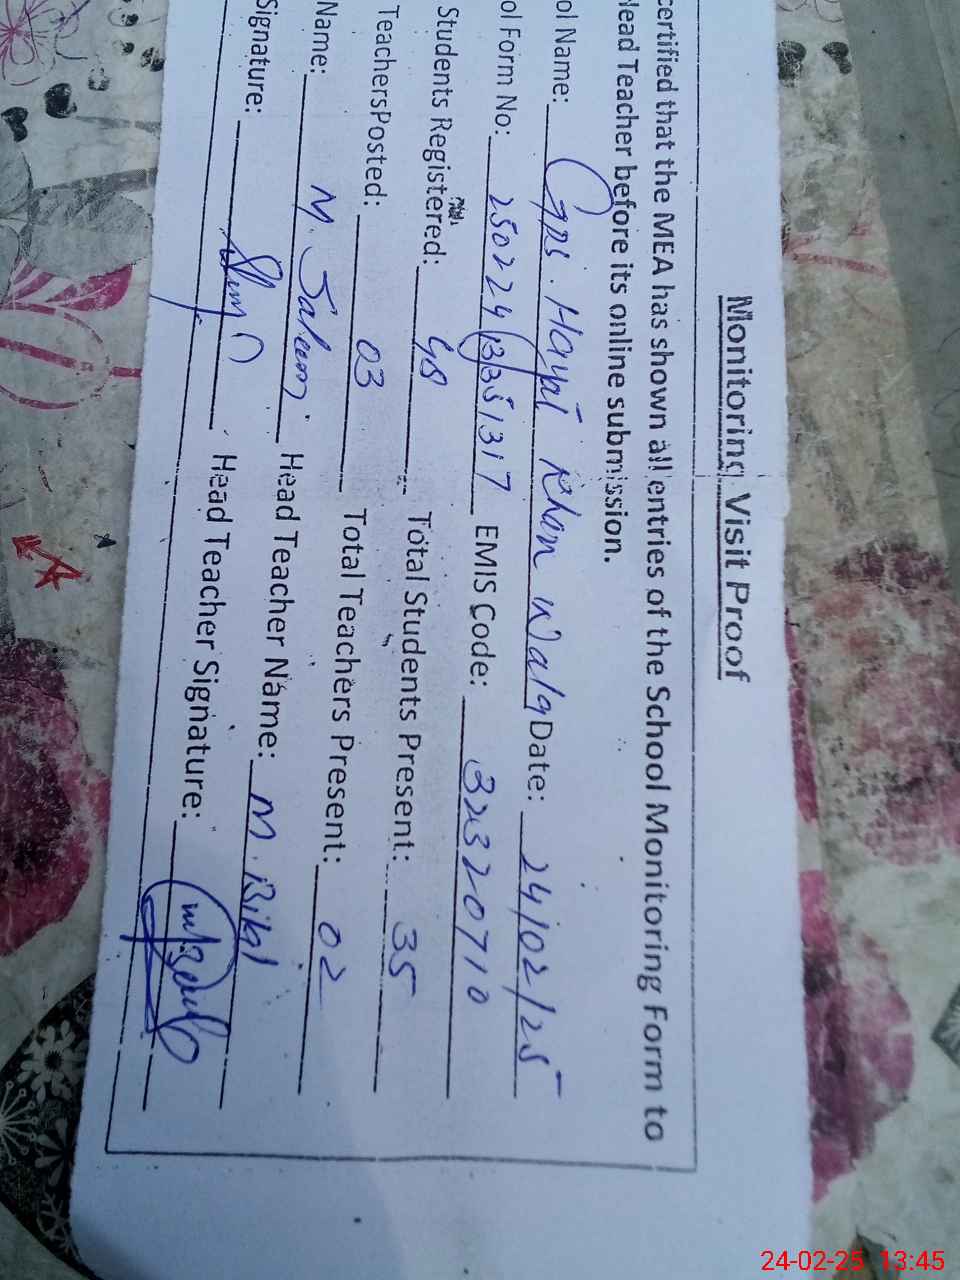 Monitoring Visit Proof
certified that the MEA has shown all entries of the School Monitoring Form to
Head Teacher before its online submission.
ol Name: Gps. Hayat Khan Wala Date: 24/02/25
ol Form No: 250224 131317 EMIS Code: 32320710
Students Registered: 48 Total Students Present: 35
TeachersPosted: 03 Total Teachers Present: 02
Name: M. Saleem Head Teacher Name: M. Bilal
Signature: Head Teacher Signature:
24-02-25 13:45